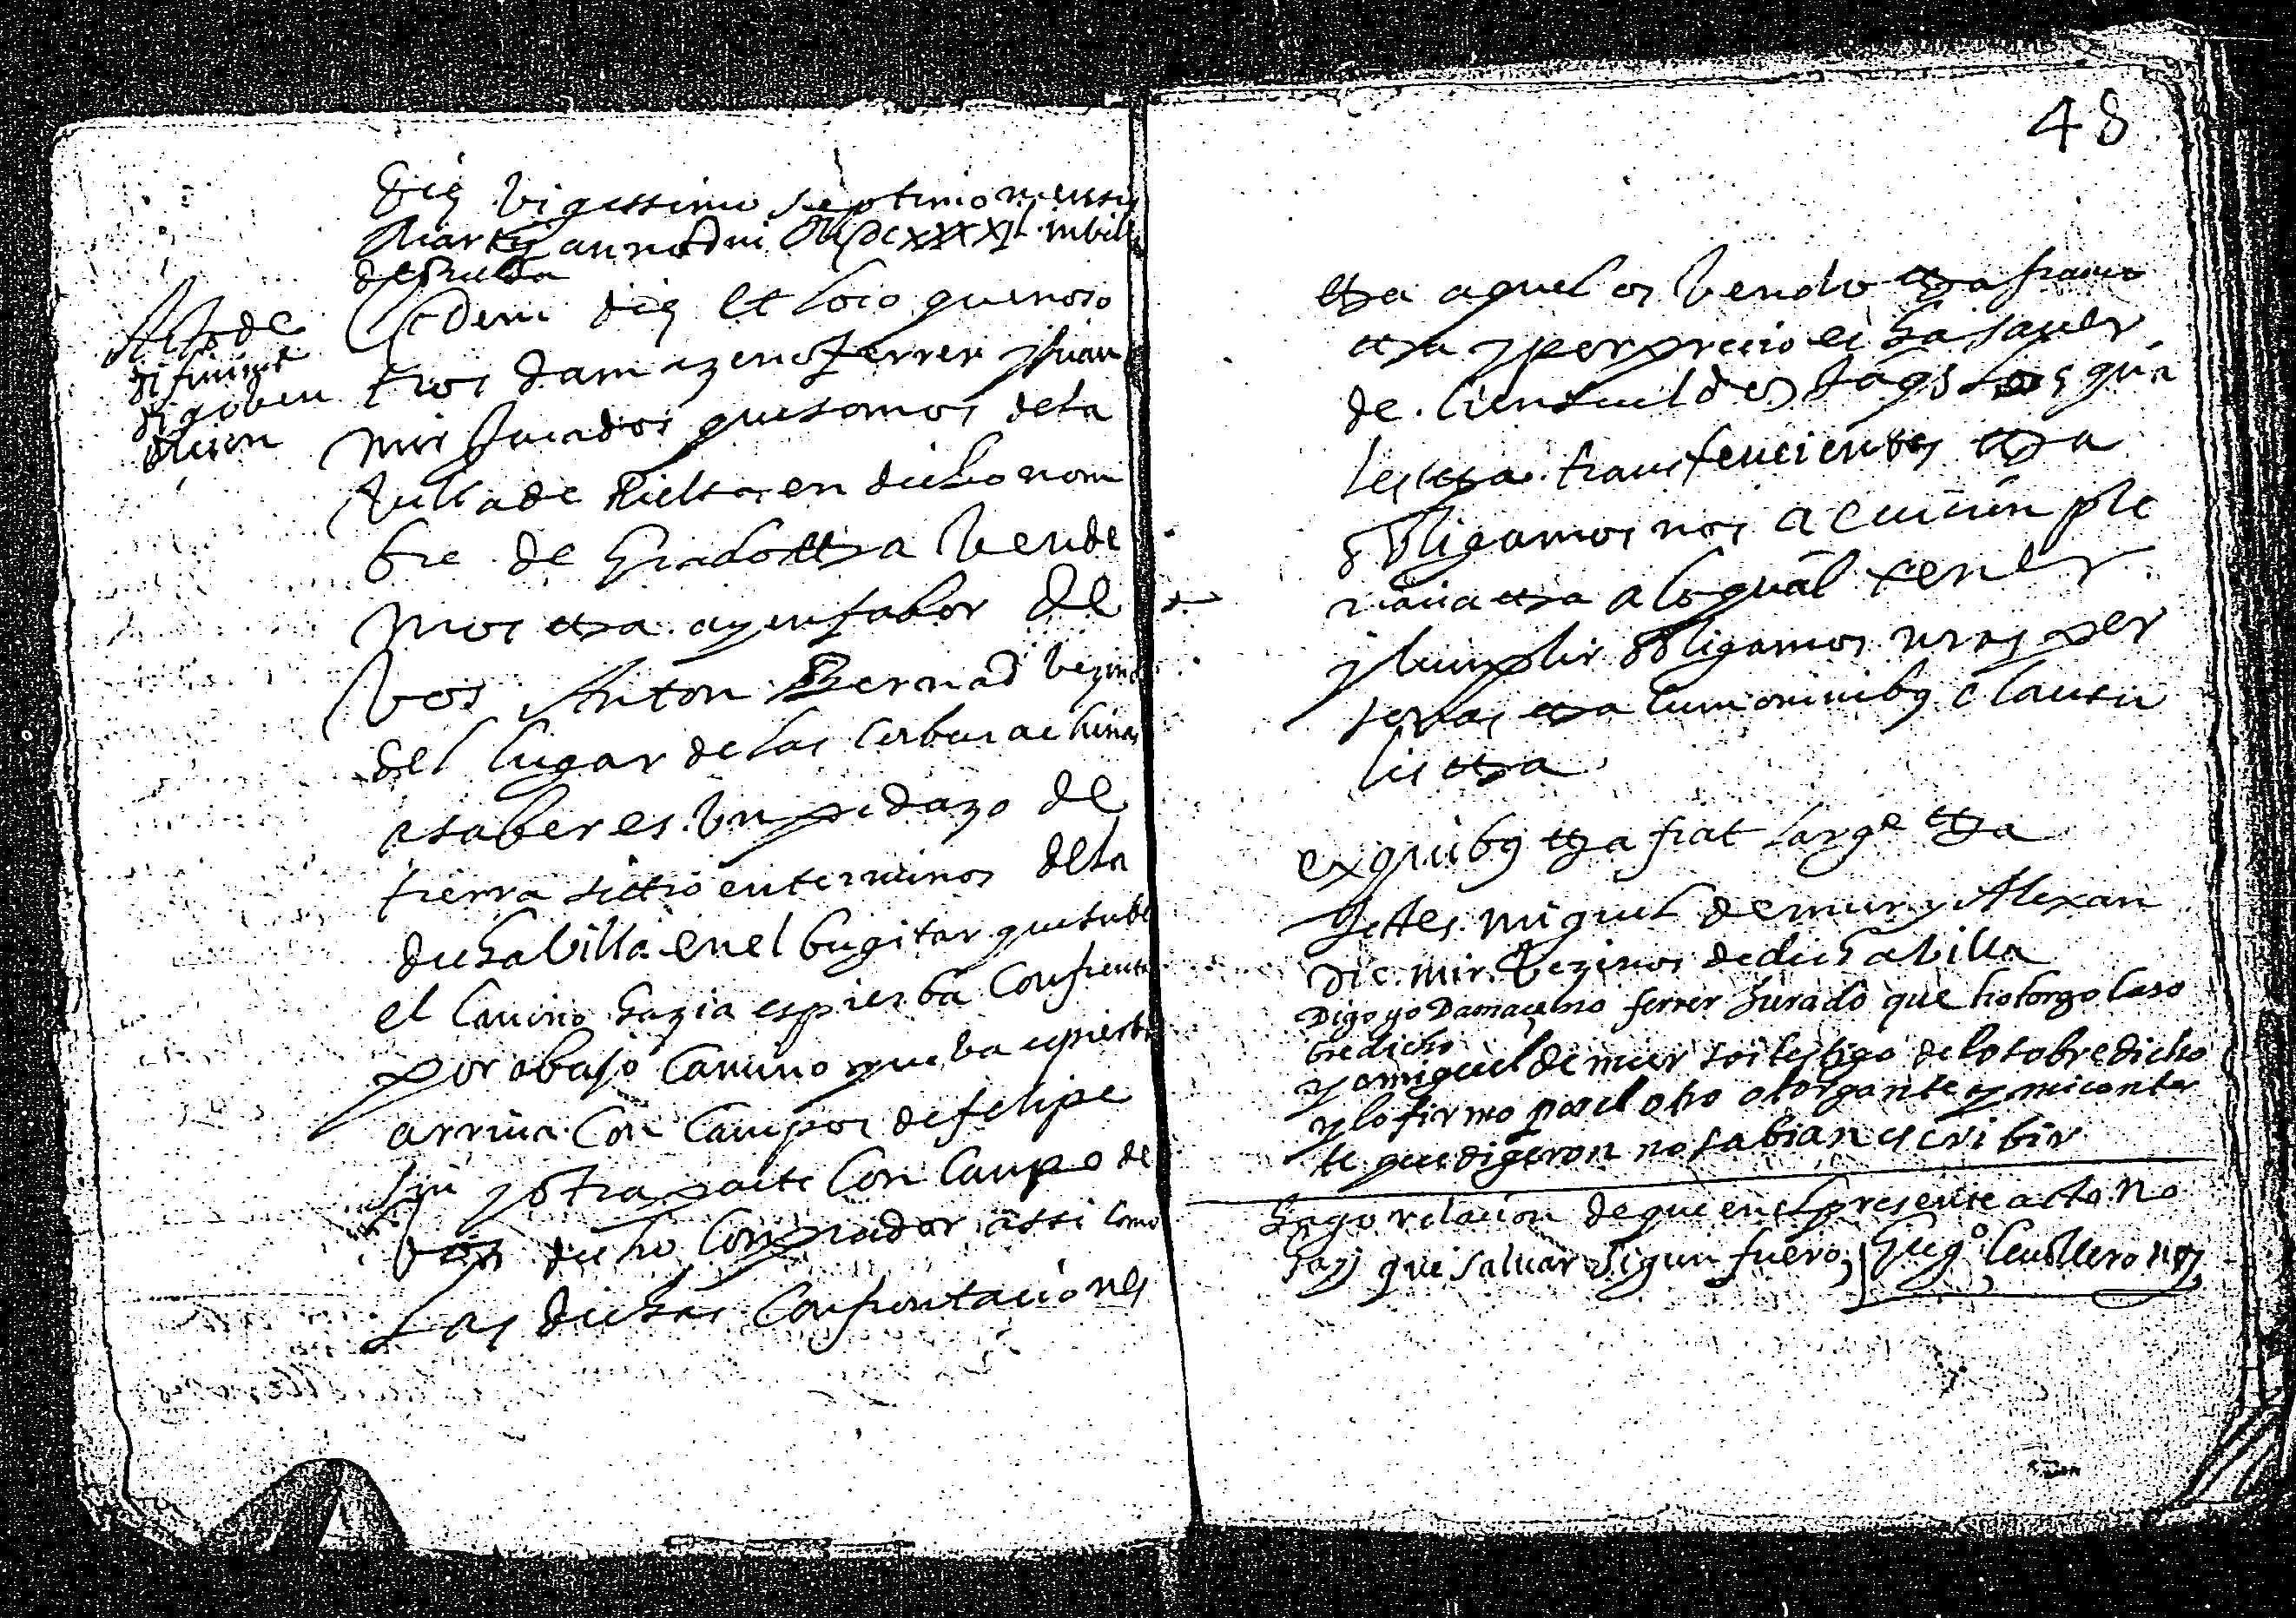 Die vigessimo septimo mensis
Martij anno dni MDCXXXXI in villa
de
Eadem die et loco que noso
tros damazeno ferrer y Juan
mir Jurados que somos de la
villa de Fielsa en dicho nom
bre de grado etza vende
mos etza ay en fabor de
vos Anton Bernad vezino
del lugar de las
a saber es vn pedazo de
tierra sittio en terminos de la
dicha villa en el bugitar que sube
el Camino hazia espierba Confrenta
por abajo Camino que ba espierba
arriua Con Campos de felipe
y otra parte Con Campo de
vos dicho Comprador assi como
las dichas Confrontaciones
Acto de
48
etza aquel os vendo etza franco
etza y por precio es ha sauer
de Cien sueldos Jaqs los qua
les etza etza
obligamos nos a euicion ple
naria etza a lo qual tener
y Cumplir obligamos nras per
sonas etza Cum omnibus clausu
lis etza
ex quibus etza fiat large etza
Testes miguel de mur y Alexan
dre mir vezinos de dicha villa
Digo yo Damaçeno ferrer Jurado que hotorgo laso
bredicho
yo miguel de mur soi testigo de lo sobredicho
y lo firmo por el otro otorgante y mi conte
te que digeron no sabian escribir
hago relacion de que en el presente acto no
hay que saluar sigun fuero